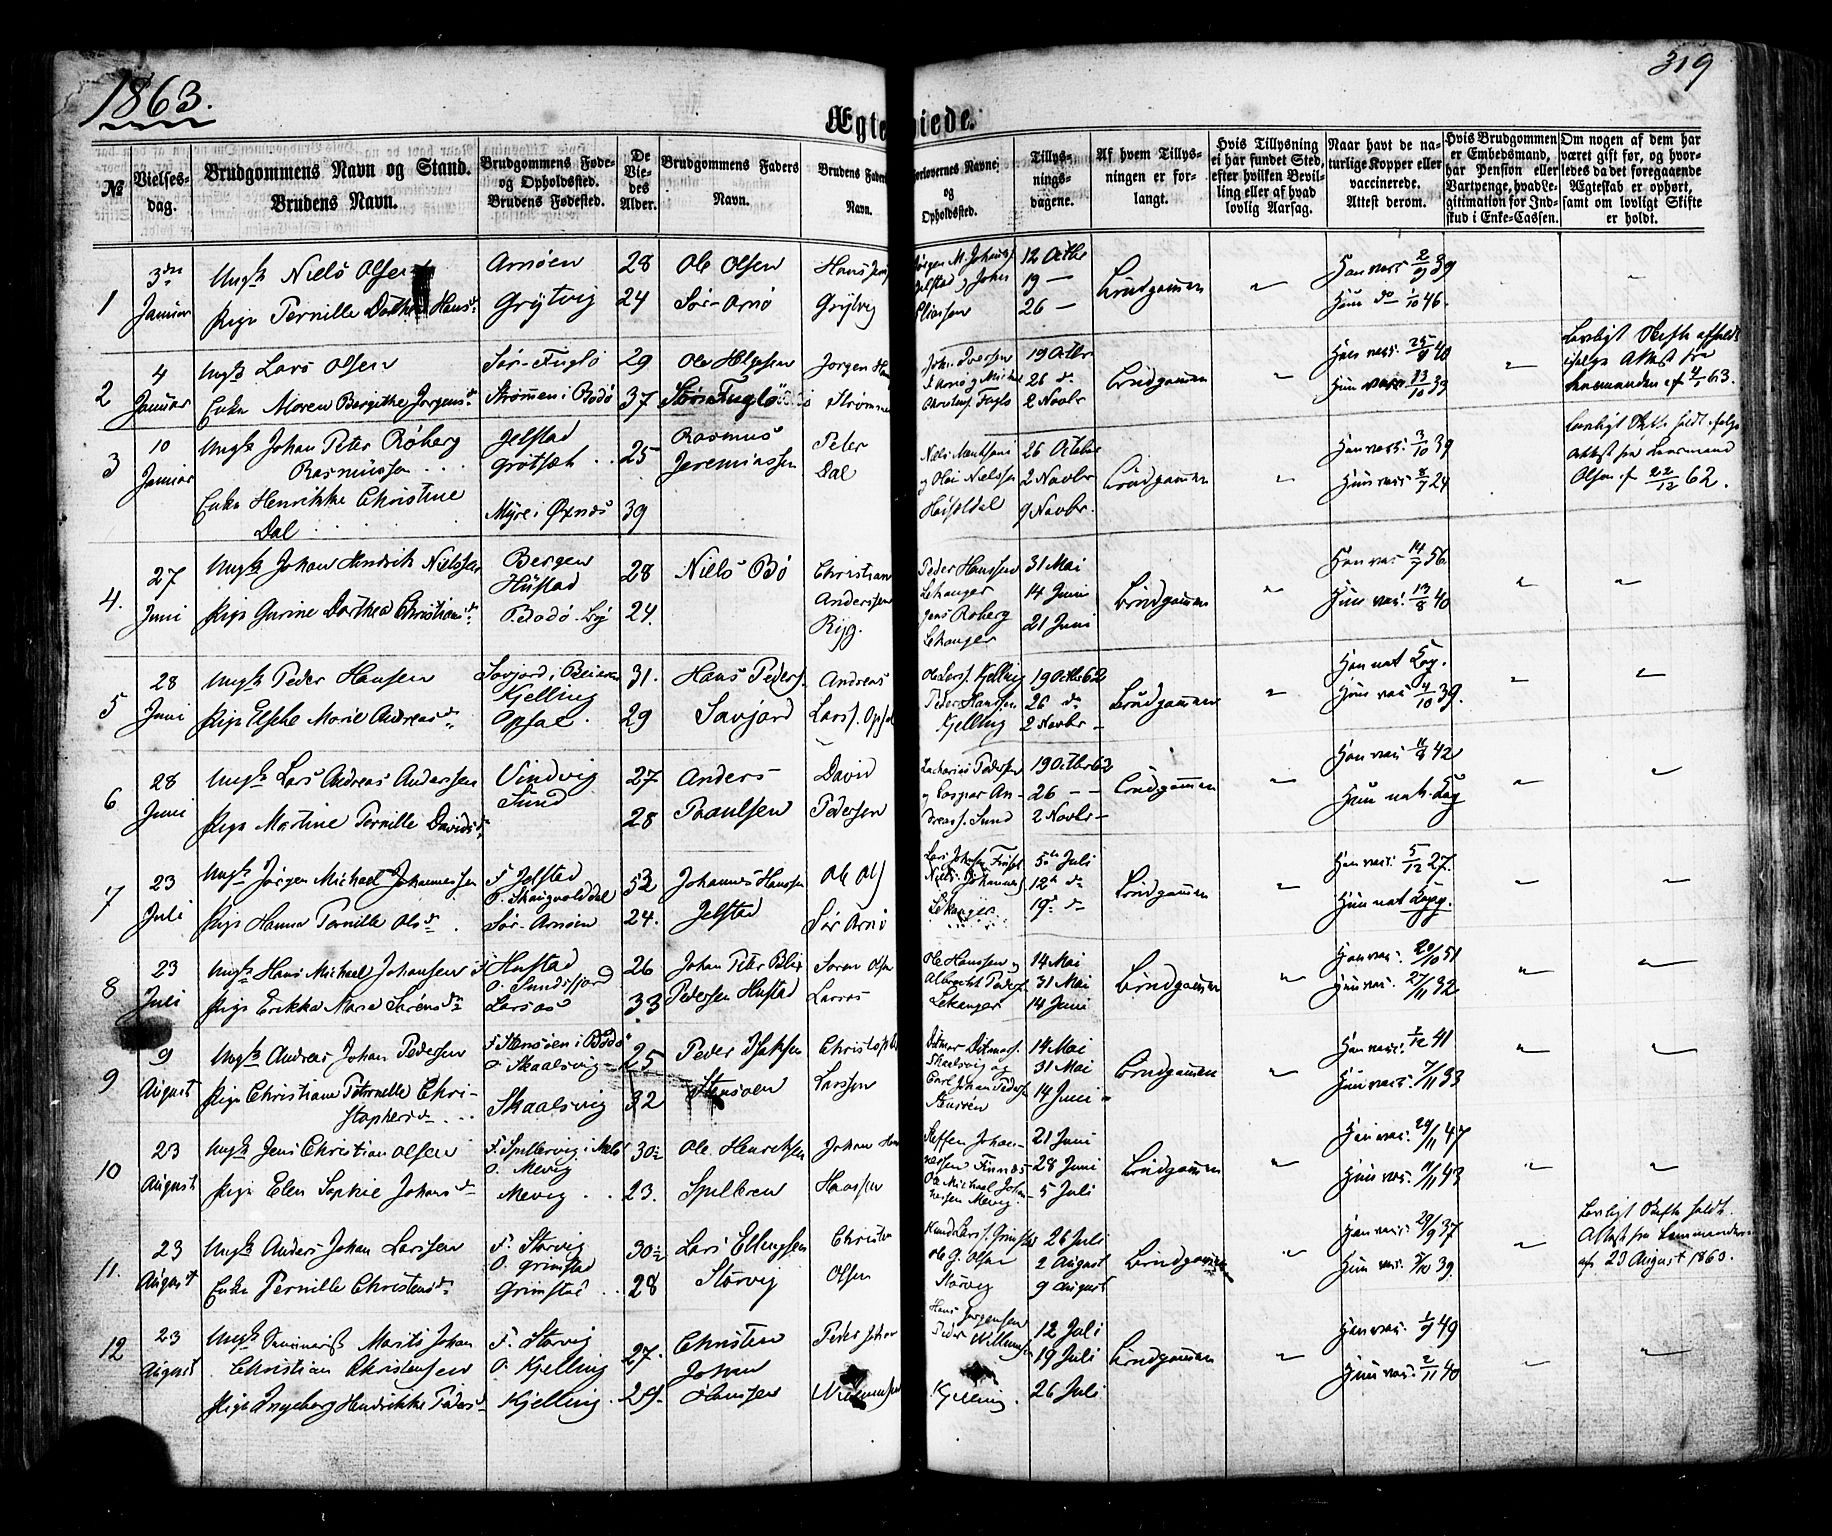 1863.
319
Ægteviede.
№
Vielses-
dag.
Brudgommens Navn og Stand.
Brudens Navn.
Brudgommens Føde-
og Opholdssted.
Brudens Fødested.
De
Vie-
des
Alder.
Brudgommens Faders
Navn.
Brudens Faders
Navn.
Forlovernes Navne
og
Opholdssted.
Tillys-
nings-
dagene.
Af hvem Tillys-
ningen er for-
langt.
Hvis Tillysning
ei har fundet Sted,
efter hvilken Bevil-
ling eller af hvad
lovlig Aarsag.
Naar havt de na-
turlige Kopper eller
vaccinerede.
Attest derom.
Hvis Brudgommen
er Embedsmand,
har Pension eller
Vartpenge, hvad Le-
gitimation for Ind-
skud i Enke-Cassen.
Om nogen af dem har
været gift før, og hvor-
ledes da det foregaaende
Ægteskab er ophørt,
samt om lovligt Skifte
er holdt.
1
3die
Januar
Ungk Niels Olsen
Pige Pernille Dorthea Hansd
Arnøen
Grytvig
28
24
Ole Olsen
Sør-Arnø
Hans
Grytvig
Jørgen M. Johans
Jelstad og John
Eliassen
12 Octbr
19 —
26 —
Brudgommen
"
Han vacc 2/9 39
Hun do 1/10 46.
2
4
Januar
Ungk Lars Olsen
Enke Maren Bergithe Jørgensd
Sør-Fuglø
Strømmen i Bodø
29
37
Ole Helgesen
Sør-Fuglø
Jørgen
Strømmen
John
Arnø og Michel
Christens. Fuglø
19 Octbr
26 d.
2 Novbr
Brudgommen
"
Han vacc. 25/9 40
Hun vacc 13/10 33
"
Lovligt Skifte afholdt
ifølge Attest fra
Lensmanden af 4/1 63.
3
10
Januar
Ungk Johan Peter Røberg
Rasmussen
Enke Henrikke Christine
Dal
Jelstad
Grotsæt
Myre i Øxnæs
25
39
Rasmus
Jeremiassen
Peter
Dal
og Ole Nielssen
26 Octbr
2 Novbr
9 Novbr.
Brudgommen
"
Han vacc. 3/10 39
Hun vacc 8/7 24
Lovligt Skifte holdt ifølge
Attest fra Lensmand
Olsen af 22/12 62.
4.
27
Juni
Ungk Johan Hendrik Nielssen
Pige Gurine Dorthea Christiansd
Bergen
Hustad
Bodø-By
28
24.
Niels Bø
Christian
Anderssen
Peder Hanssen
Lekanger
Jens Roberg
Lekanger
31 Mai
14 Juni
21 Juni
Brudgommen
"
Han vac 14/7 56.
Hun vac. 13/8 40
"
"
5
28
Juni
Ungk Peder Hansen
Pige Elsebe Marie Andreasd
Savjord i Beieren
Kjelling
Opsal
31.
29
Hans Peders.
Savjord
Andreas
Larss. Opsal
Ole Larss. Kjelling
Peder Hanssen
Kjelling
19 Octbr 62
26 d.
2 Novbr —
Brudgommen
"
Han nat. Kop.
Hun vac 4/10 39.
"
"
6
28
Juni
Ungk Lars Andreas Anderssen
Pige Martine Pernille Davidsd
Vindvig
Sund
27
28
Anders
Paulsen
David
Pedersen
Zacharias Pedersen
og Caspar An-
dreass. Sund
19 Octbr 62
26 — —
2 Novbr —
Brudgommen
"
Han vac 42
Hun nat. Kop
"
"
7
23
Juli
Ungk Jørgen Michael Johannessen
Pige Hanna Pernille Olsd
F. Jelstad
Sør-Arnøen
52
24.
Johannes Hanssen
Jelstad
Ole Ols
Sør Arnø
Niels Johannes
Lekanger
5te Juli
12te d.
19 d.
Brudgommen
"
Han vacc. 5/12 27.
Hun nat Kopp.
"
"
8
23
Juli
Ungk Hans Michael Johansen
Pige Erikka Maria Sørensd
F. Hustad
O. Sundsfjord
Larsos
26
33
Johan Peter Blix
Pedersen Hustad
Søren Olsen
Larsos
Ole Hanssen og
Albrecht Peders.
Lekanger
14 Mai
31 Mai
14 Juni
Brudgommen
"
Han vacc. 20/10 51
Hun vac. 27/11 32
"
"
9
9
August
Ungk Andreas Johan Pedersen
Pige Christiane Petronelle Chri-
stophersd
F. Stensøen i Bodø
O. Skaalsvig
Skaalsvig
25
32
Peder Isaksen
Stensøen
Christoph
Larssen
Ditmar Ditmars.
Skaalsvig og
Carl Johan Peders
14 Mai
31 Mai
14 Juni
Brudgommen
"
Han vacc. 41
Hun vacc. 7/11 33
"
"
10
23
August
Ungk Jens Christian Olsen
Pige Elen Sophie Johansd
F. Spildervig i Melø
O. Mevig
Mevig
30½
23.
Ole Henriksen
Spilderen
Johan
Hanssen
Steffen Johan-
nessen Finnes
Ole Michael Johan-
nessen Mevig
21 Juni
28 Juni
5 Juli
Brudgommen
"
Han vac. 29/11 47
Hun vac. 43
"
"
11.
23
August
Ungk Anders Johan Larssen
Enke Pernille Christensd
F. Storvig
O. Grimstad
Grimstad
30½
28
Lars Ellingsen
Storvig
Christen
Olsen
Knud Larss. Grimstad
Ole G. Olsen
Storvig
26 Juli
2 August
9 August
Brudgommen
"
Han vac. 29/9 37
Hun vac. 39.
"
Lovligt Skifte holdt.
Attest fra Lensmanden
af 23 August 1863.
12
23
August
Ungk Seminarist Morits Johan
Christian Christensen
Pige Ingeborg Hendrikke Pedersd
F. Storvig
O. Kjelling
Kjelling
27.
29.
Christen
Johan
Hanssen
Peder Johan
Willumsen
Hans Jørgensen
Peder Willumsen
Kjelling.
12 Juli
19 Juli
26 Juli
Brudgommen
"
Han vac. 1/9 49
Hun vac. 2/11 40
"
"